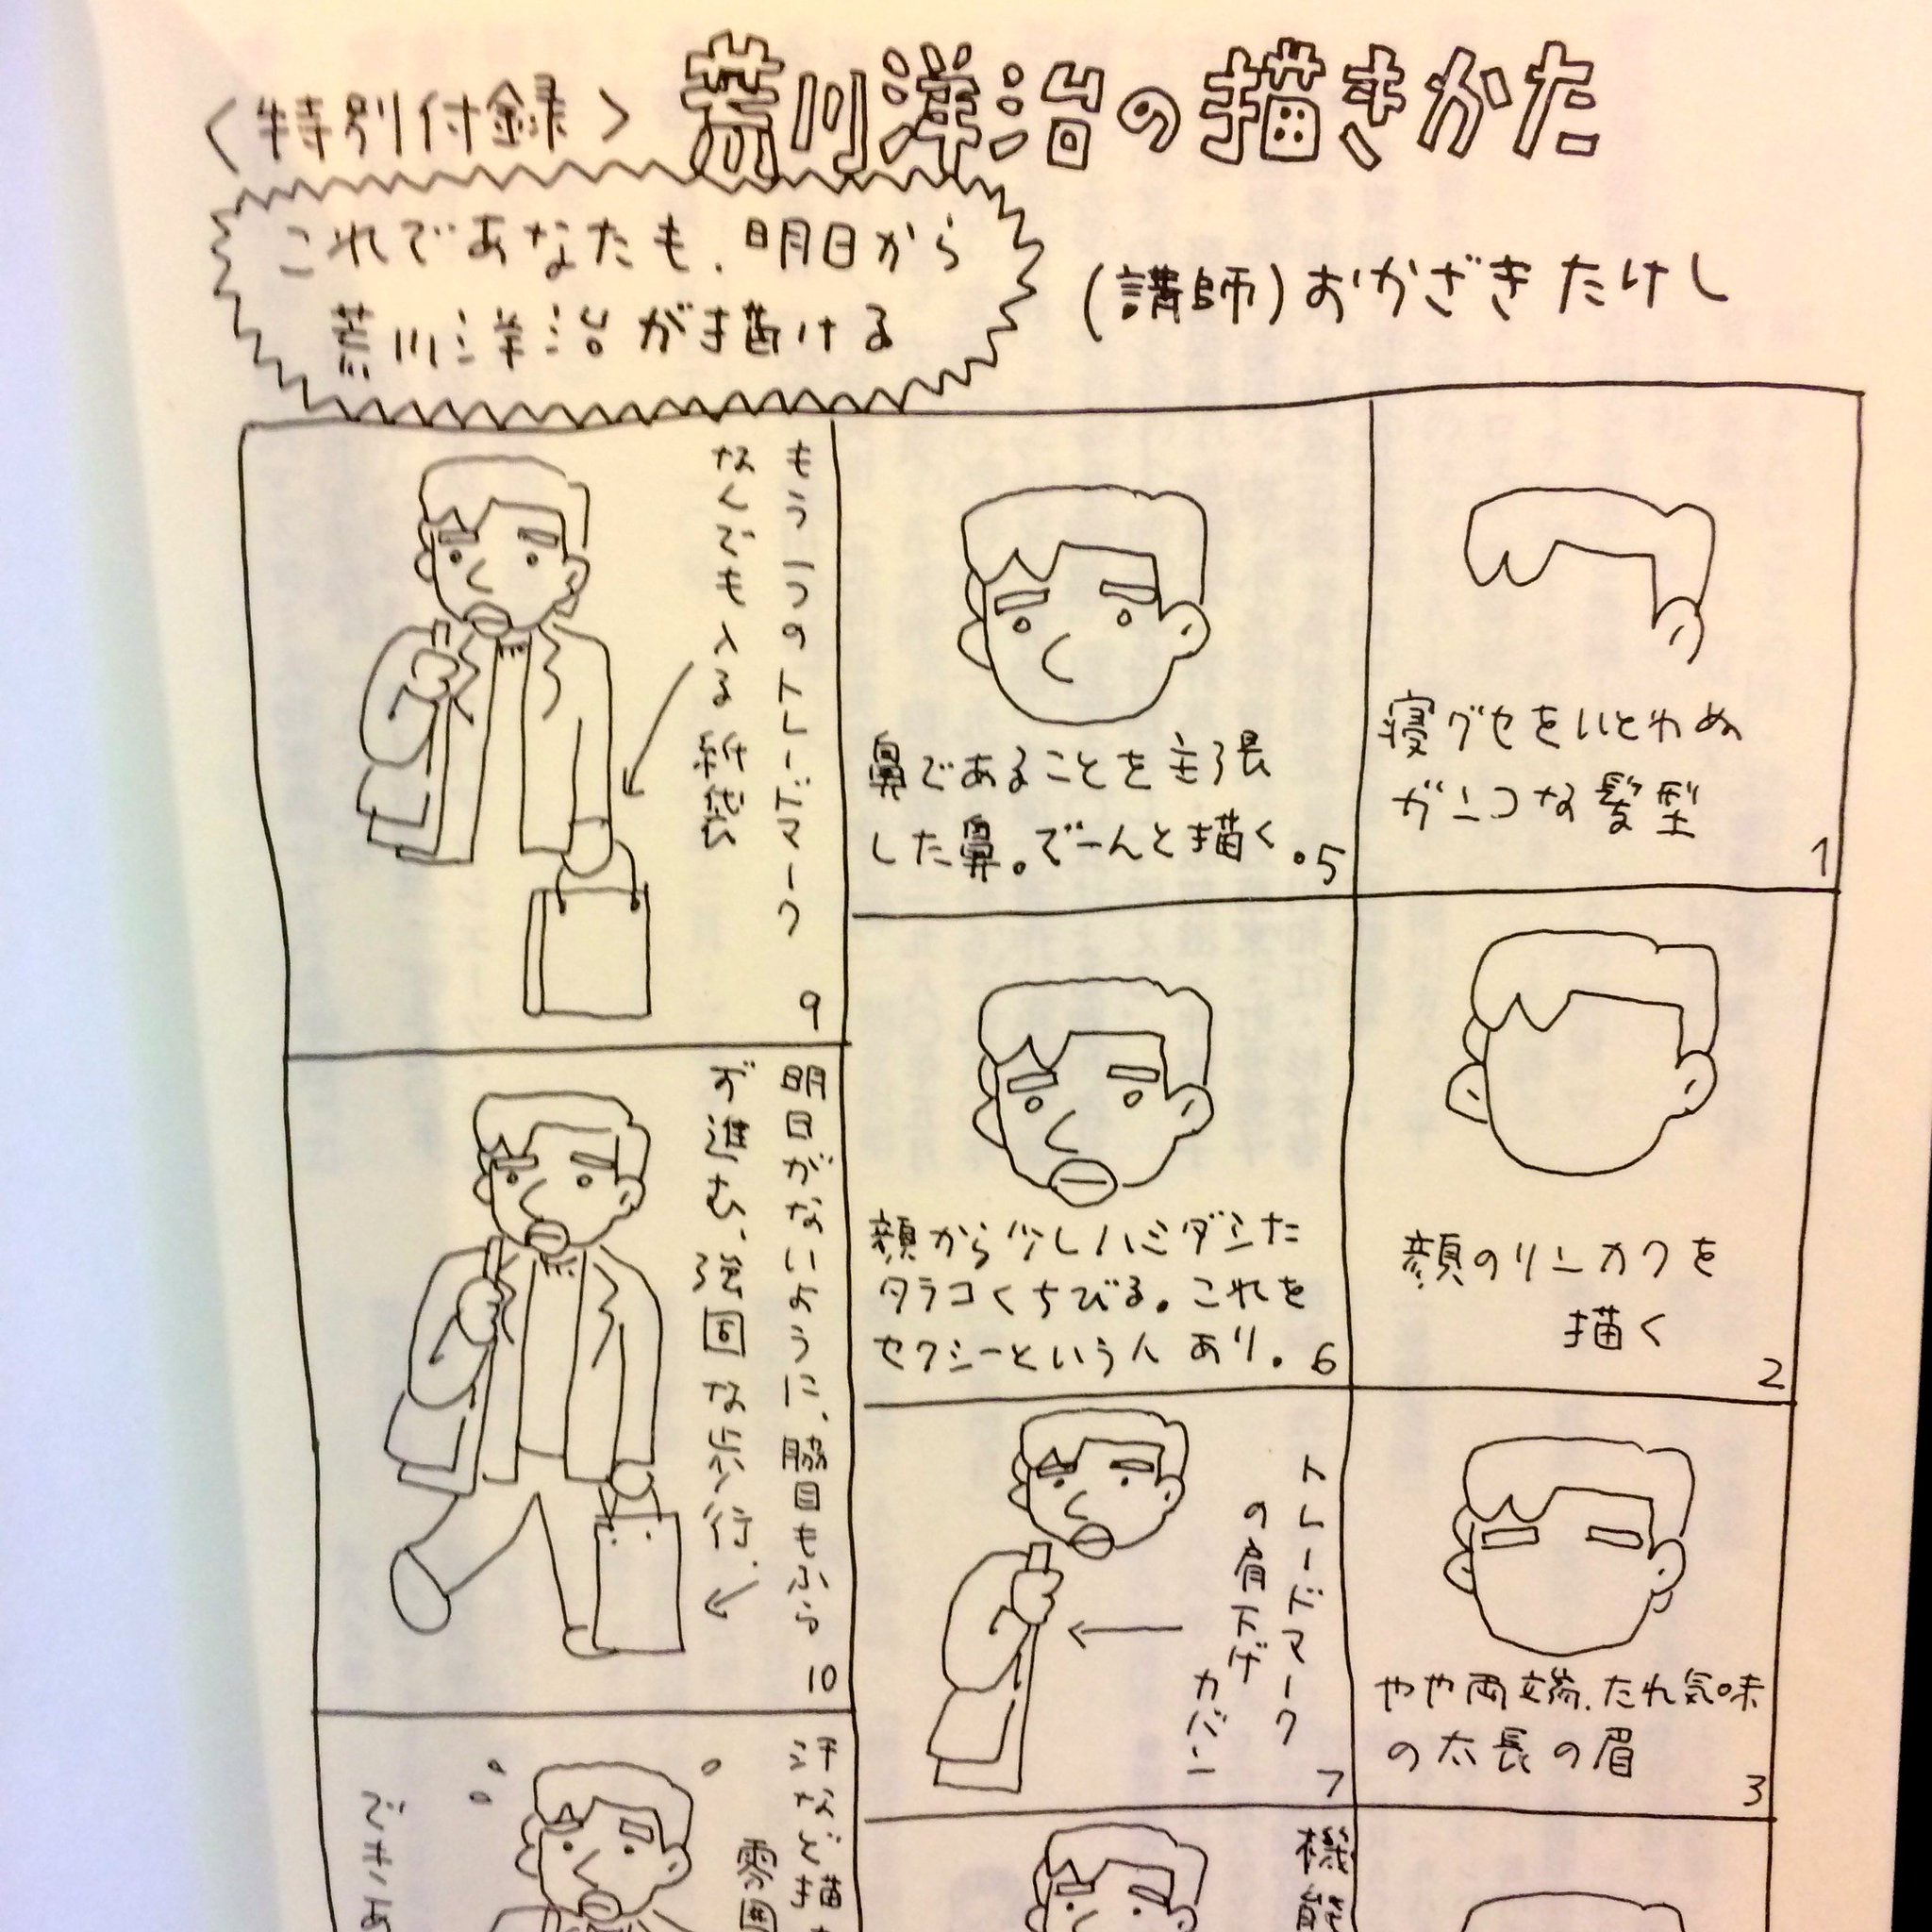 <特別付録> 荒川洋治の描きかた
これであなたも、明日から
荒川洋治が描ける
(講師)おかざきたけし
寝グセをいとわぬ
ガンコな髪型
1
顔のリンカクを
描く
2
やや両端、たれ気味
の太長の眉
3
鼻であることを主張
した鼻。でーんと描く。5
顔から少しハミダシた
タラコくちびる。これを
セクシーという人あり。6
トレードマーク
の肩下げ
カバン
7
機能
もう一つのトレードマーク
なんでも入る紙袋
9
明日がないように、脇目もふら
ず進む、強固な歩行。
10
汗など描
雰囲
でき